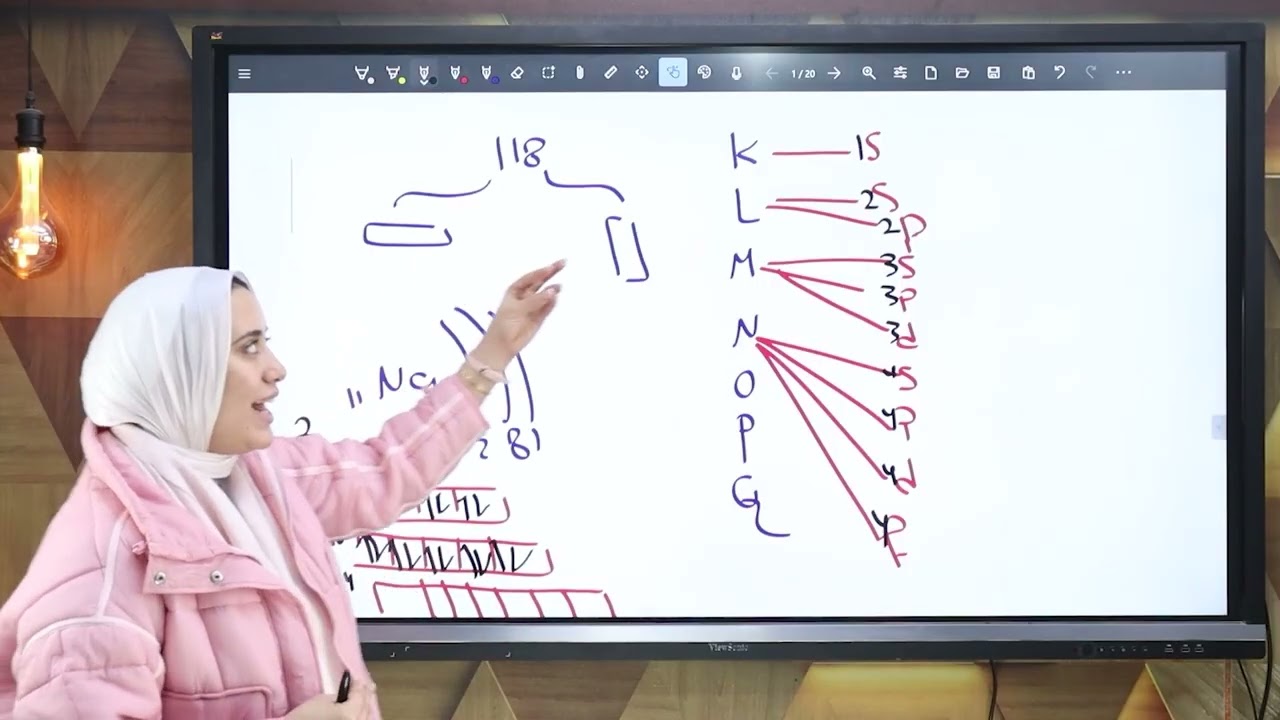 1/20
118
K 1S
L 2S
2p
M 3S
3p
3d
N 4S
4p
4d
4f
O
P
Q
11 Na
2 8 1
2
ViewSonic